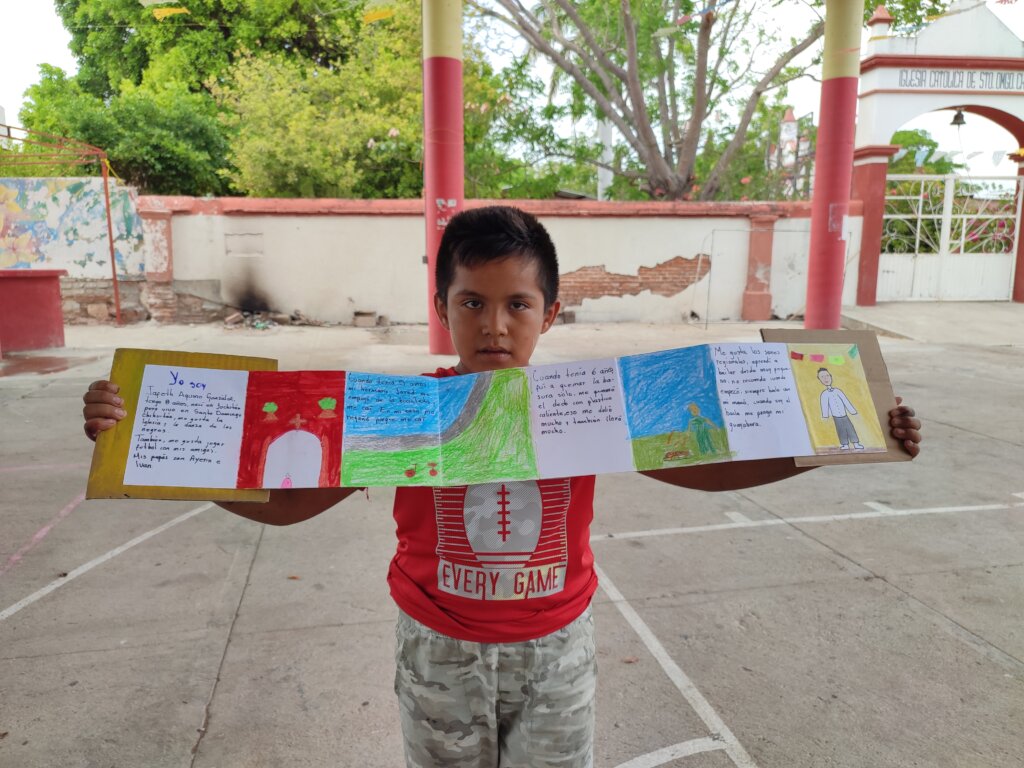 IGLESIA CATOLICA DE STO. DMGO.
Yo soy
años, nací en Juchitán
pero vivo en Santo Domingo
me gusta la
Iglesia y la danza de los
negros.
También, me gusta jugar
futbol con mis amigos.
Mis papás son Ayerin e
Ivan.
Cuando tenía 5 años,
mi hermano
empujó de la bicicleta
me caí. En mi casa no
Cuando tenía 6 años,
fui a quemar la ba-
sura sólo. me quemé
el dedo con plastico
caliente, eso me dolió
mucho y tambien lloré
mucho.
Me gusta los sones
regionales, aprendí a
bailar desde muy peque-
ño, no recuerdo cuando
empecé, siempre bailo con
mi mamá, cuando voy al
baile me pongo mi
guayabera.
EVERY GAME